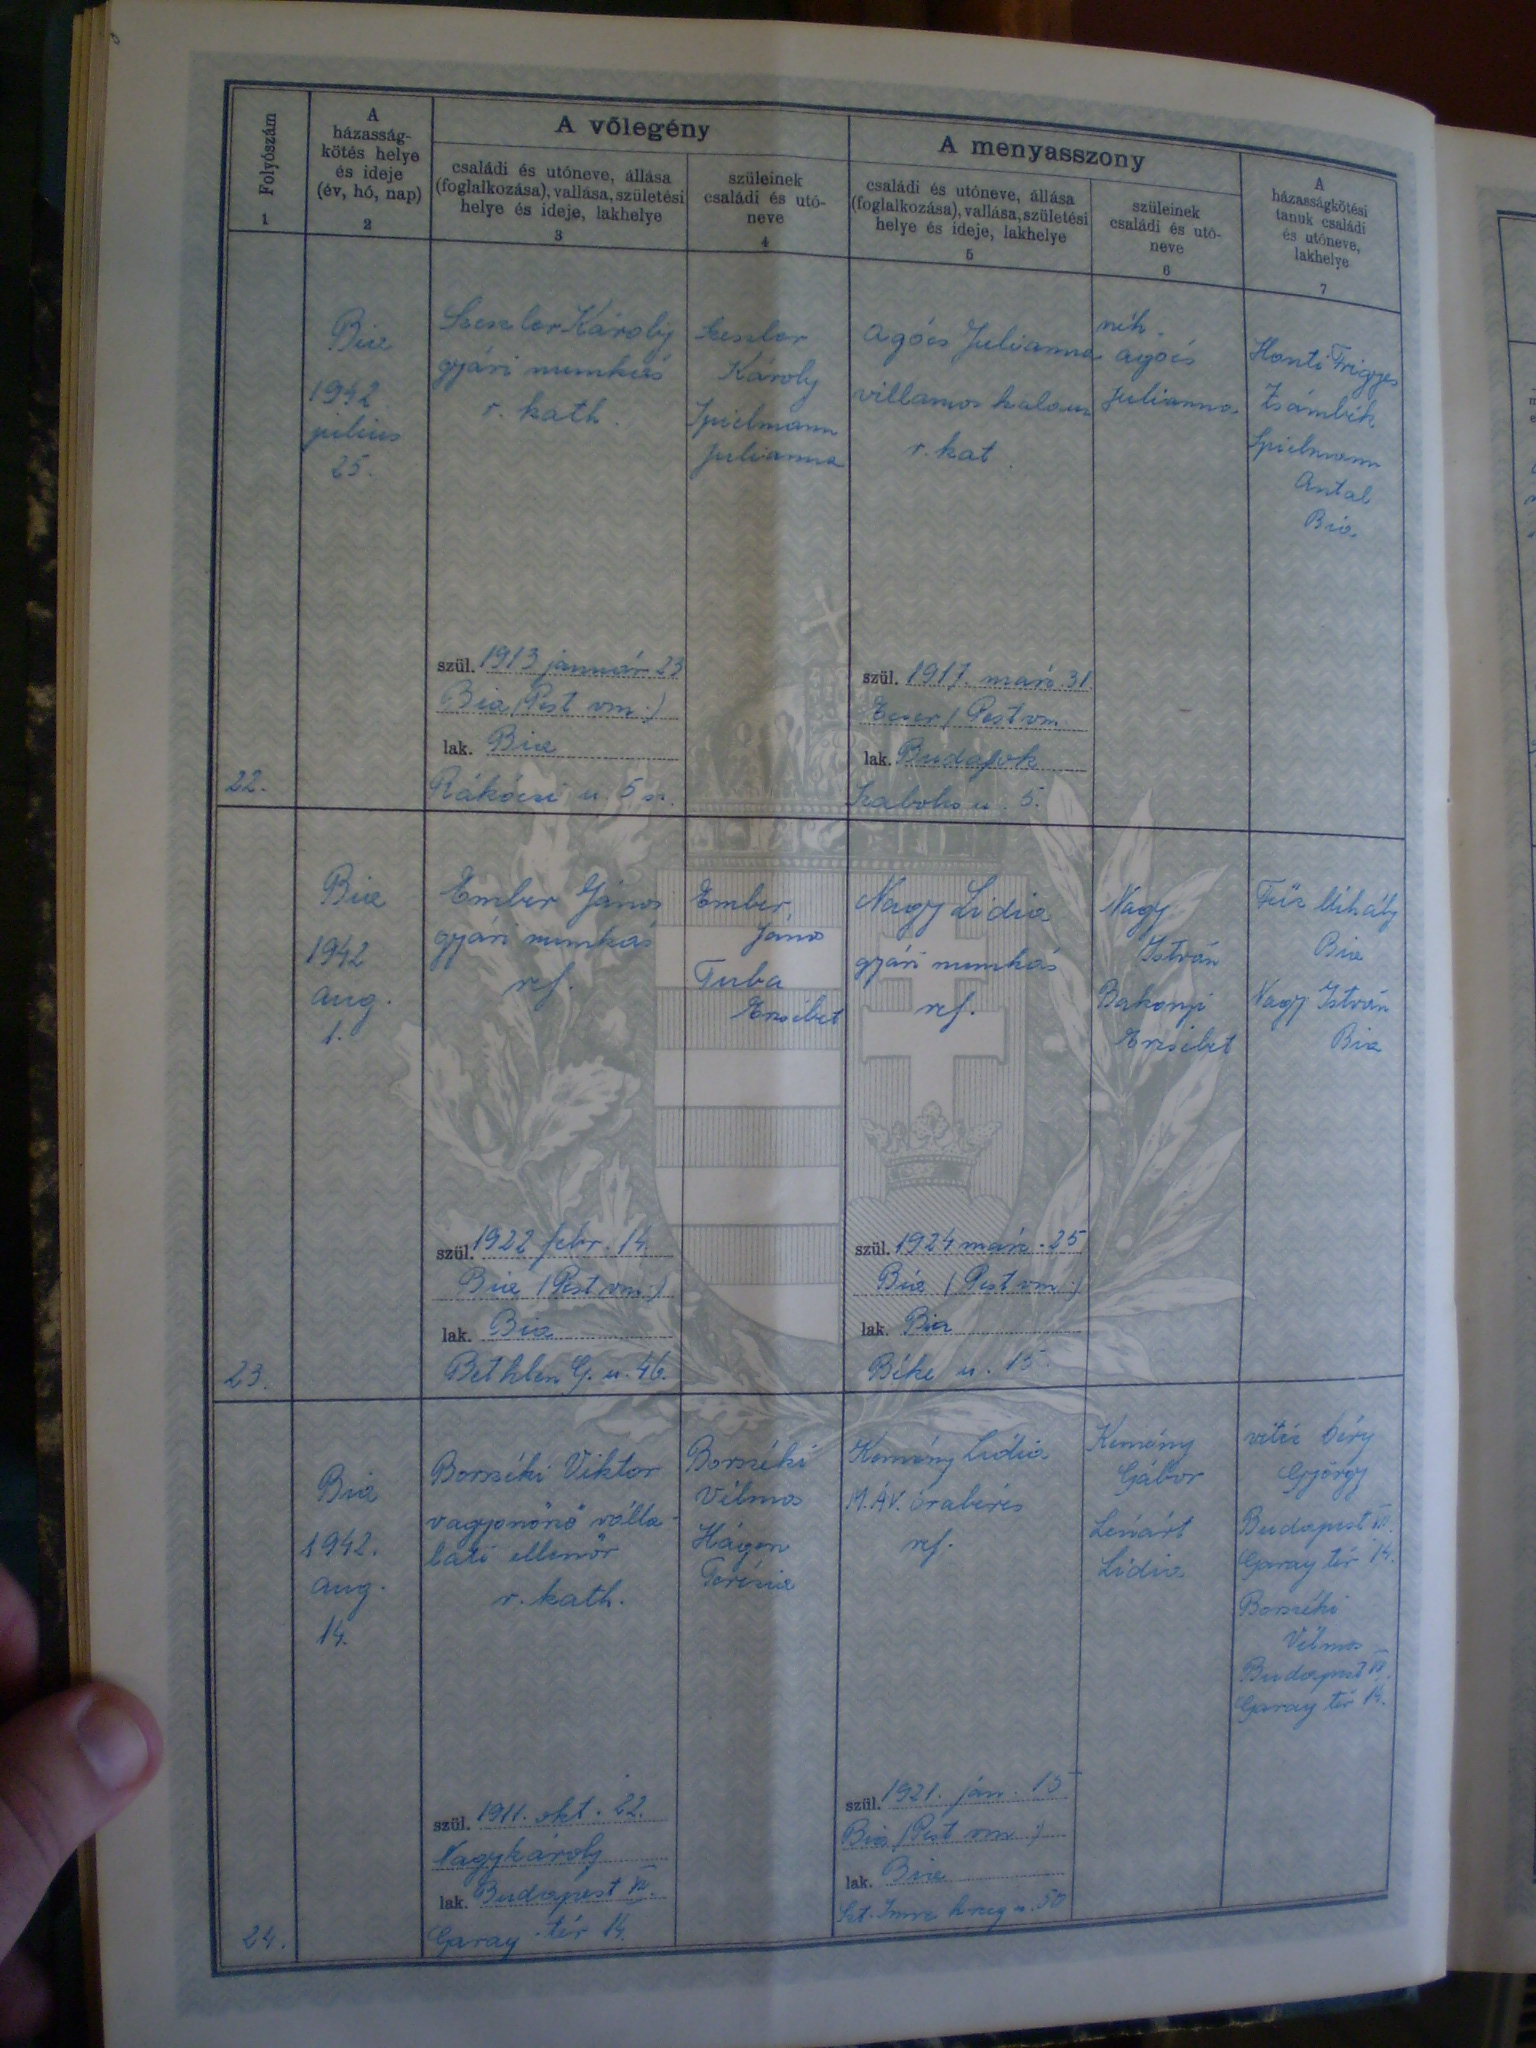 Folyószám
1
A
házasság-
kötés helye
és ideje
(év, hó, nap)
2
A vőlegény
családi és utóneve, állása
(foglalkozása), vallása, születési
helye és ideje, lakhelye
3
szüleinek
családi és utó-
neve
4
A menyasszony
családi és utóneve, állása
(foglalkozása), vallása, születési
helye és ideje, lakhelye
5
szüleinek
családi és utó-
neve
6
A
házasságkötési
tanuk családi
és utóneve,
lakhelye
7
22.
Bia
1942
július
25.
Szeszler Károly
gyári munkás
r. kath.
szül. 1913 január 23
Bia (Pest vm.)
lak. Bia
Rákóczi u. 5 sz.
Szeszler
Károly
Spielmann
Julianna
Agócs Julianna
villamos kalauz
r. kat.
szül. 1917. márc. 31.
Ecser (Pest vm.
lak. Budafok
Szabolcs u. 5.
néh.
Agócs
Julianna
Honti Frigyes
Zsámbék
Spielmann
Antal
Bia.
23.
Bia
1942
aug.
1.
Ember János
gyári munkás
ref.
szül. 1922 febr. 14.
Bia (Pest vm.)
lak. Bia
Bethlen G. u. 46.
Ember
János
Tuba
Erzsébet
Nagy Lidia
gyári munkás
ref.
szül. 1924 márc. 25
Bia (Pest vm.)
lak. Bia
Béke u. 15.
Nagy
István
Bakonyi
Erzsébet
Füz Mihály
Bia
Nagy István
Bia
24.
Bia
1942.
aug.
14.
Borszéki Viktor
vagyonőrző válla-
lati ellenőr
r. kath.
szül. 1911. okt. 22.
Nagykároly
lak. Budapest VII.
Garay tér 14.
Borszéki
Vilmos
Hágen
Terézia
Kemény Lidia
M.ÁV. órabéres
ref.
szül. 1921. jan. 15
Bia (Pest vm.)
lak. Bia
Szt. Imre herceg u. 50
Kemény
Gábor
Lénárt
Lidia
vitéz Déry
György
Budapest VII.
Garay tér 14.
Borszéki
Vilmos
Budapest VII.
Garay tér 14.